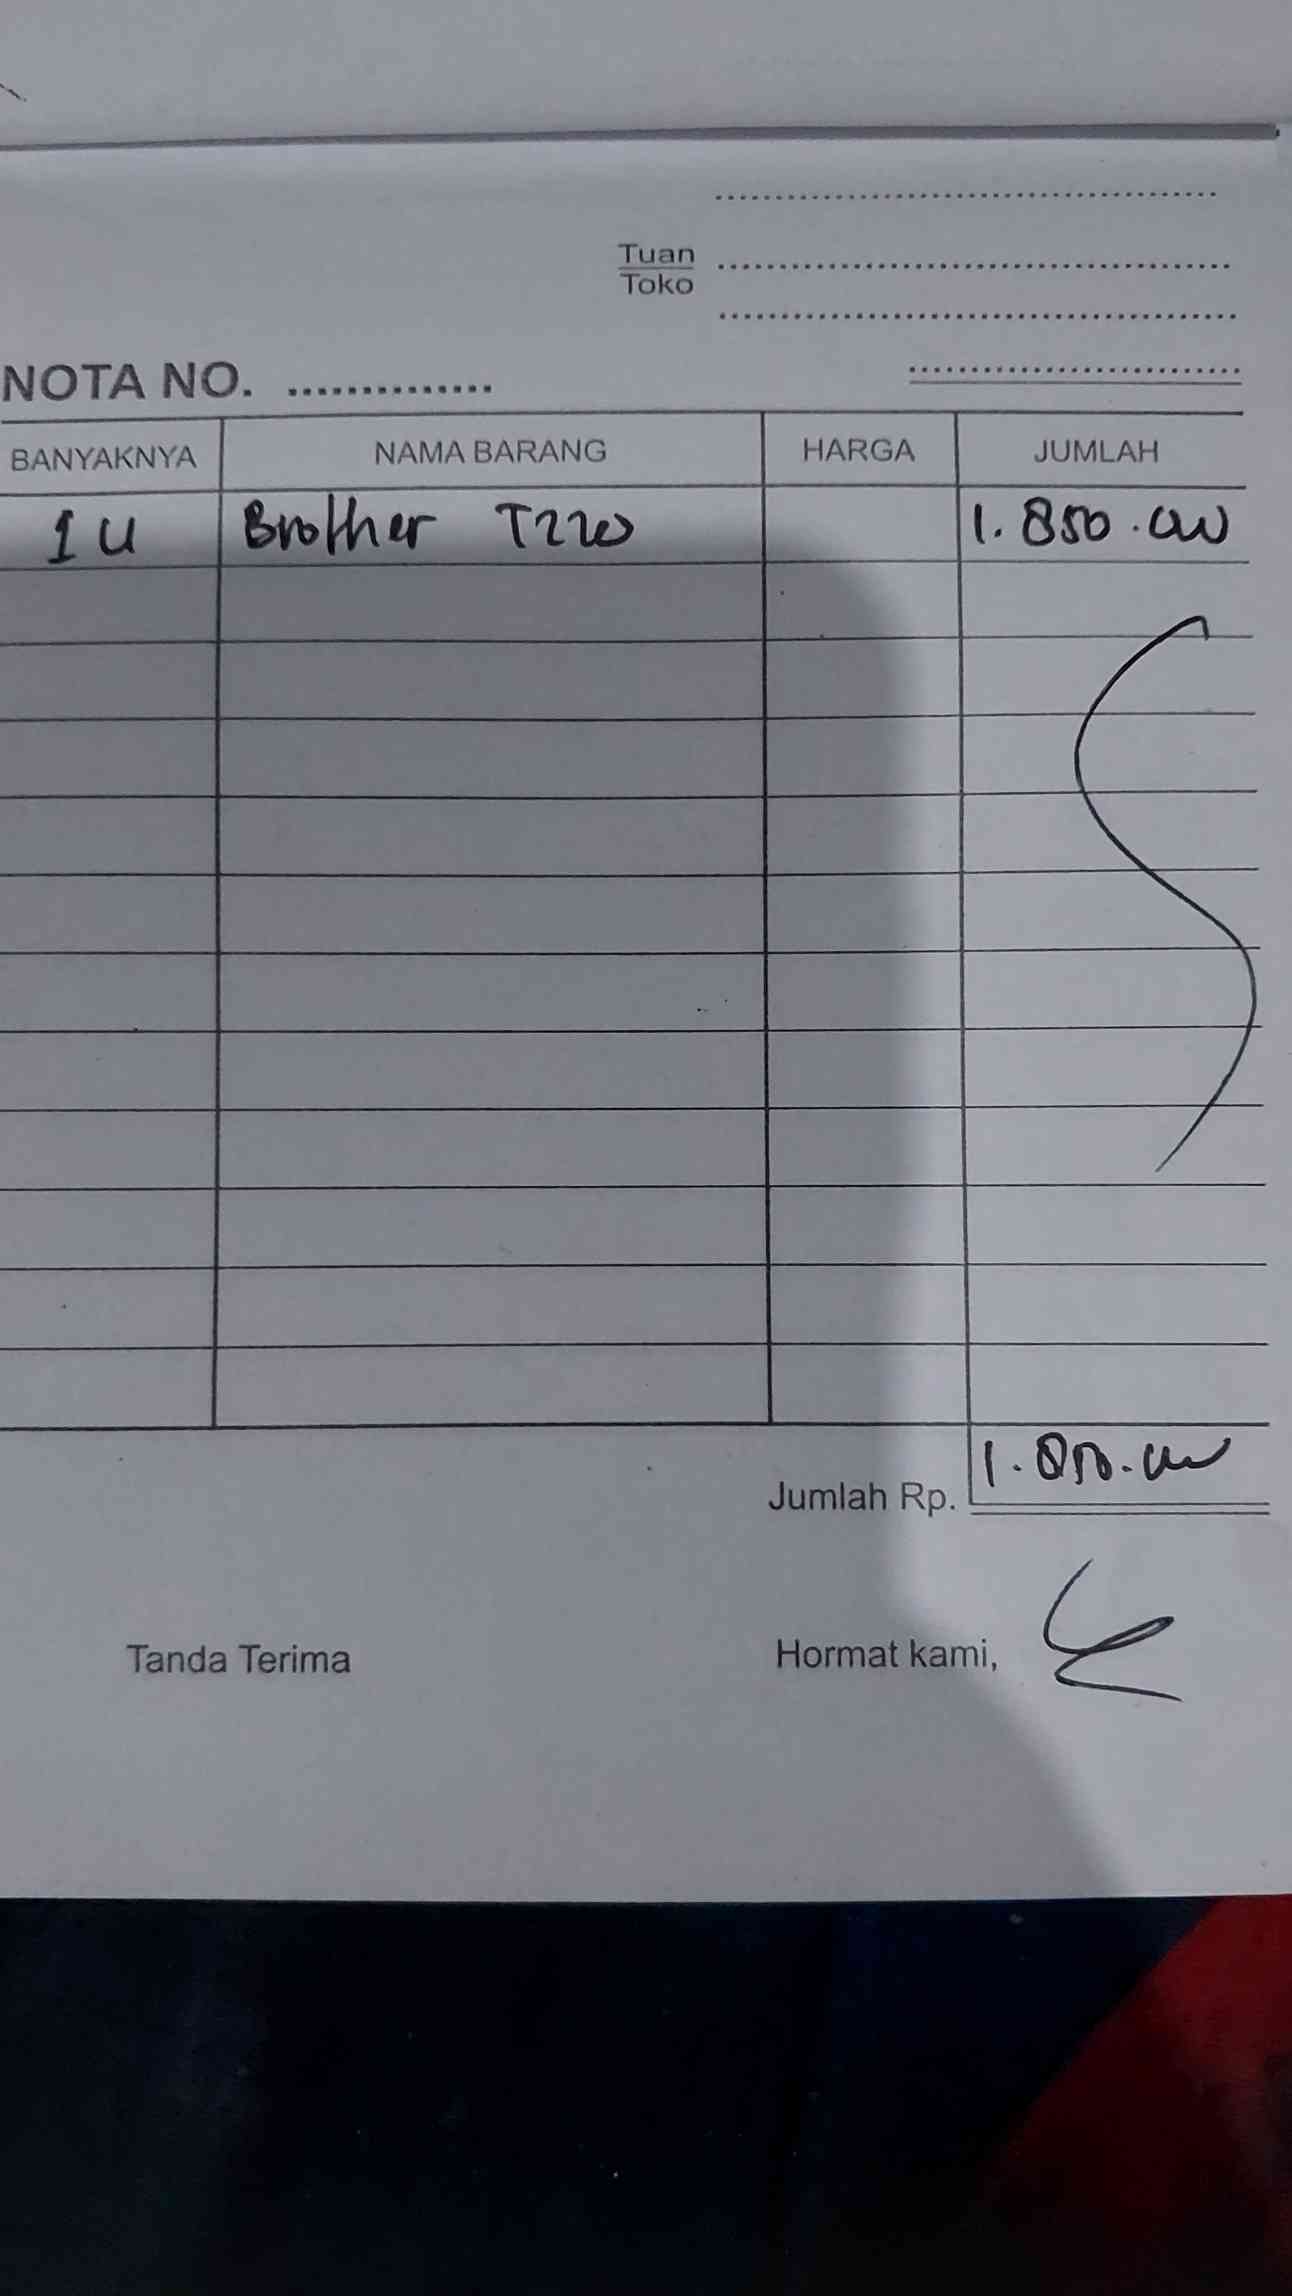 Tuan
Toko
NOTA NO. ..............
BANYAKNYA NAMA BARANG HARGA JUMLAH
1 U Brother T220 1.850.000
Jumlah Rp. 1.850.000
Tanda Terima Hormat kami,